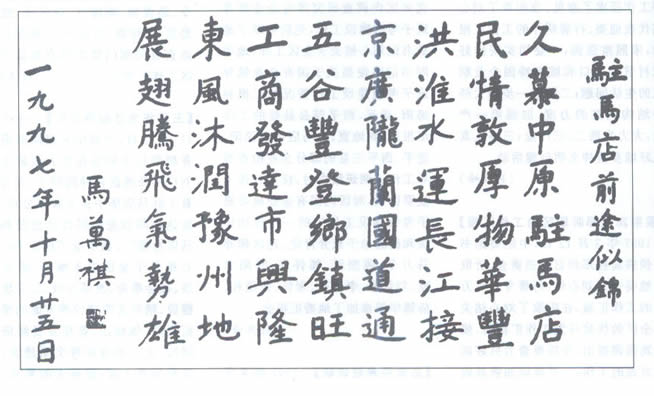 駐馬店前途似錦
久慕中原駐馬店
民情敦厚物華豐
洪淮水運長江接
京廣隴蘭國道通
五谷豐登鄉鎮旺
工商發達市興隆
東風沐潤豫州地
展翅騰飛氣勢雄
馬萬祺
一九九七年十月廿五日